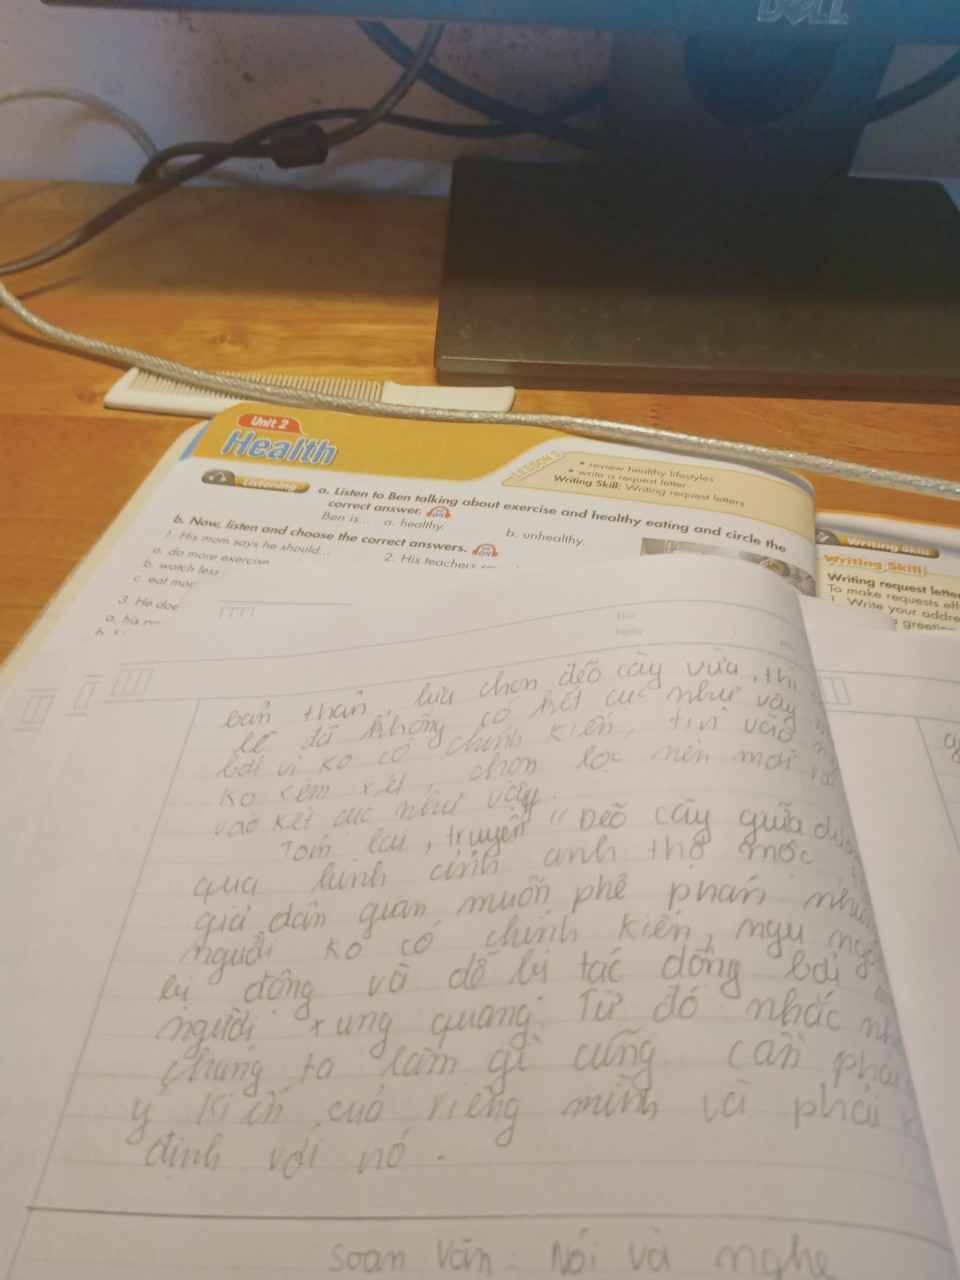 DELL
Unit 2
Health
LESSON 3
• review healthy lifestyles
• write a request letter
Writing Skill: Writing request letters
Listening
a. Listen to Ben talking about exercise and healthy eating and circle the
correct answer.
Ben is... a. healthy. b. unhealthy.
b. Now, listen and choose the correct answers.
1. His mom says he should... 2. His teachers
a. do more exercise
b. watch less
c. eat mor
3. He doe
a. his m
b.
Writing Skill
Writing Skill
Writing request letter
To make requests eff
1. Write your addre
greeting
bản thân, lựa chọn đẽo cày vừa, thì
lẽ đã không có kết cục như vậy
bởi vì ko có chính kiến, tin vào
ko xem xét, chọn lọc nên mới
vào kết cục như vậy.
Tóm lại, truyện "Đẽo cày giữa đườ
qua hình ảnh anh thợ mộc
giả dân gian muốn phê phán nhữ
người ko có chính kiến, ngu ngố
bị động và dễ bị tác động bởi
người xung quang. Từ đó nhắc nh
chúng ta làm gì cũng cần phải
ý kiến của riêng mình và phải
định với nó.
Soạn Văn: Nói và nghe